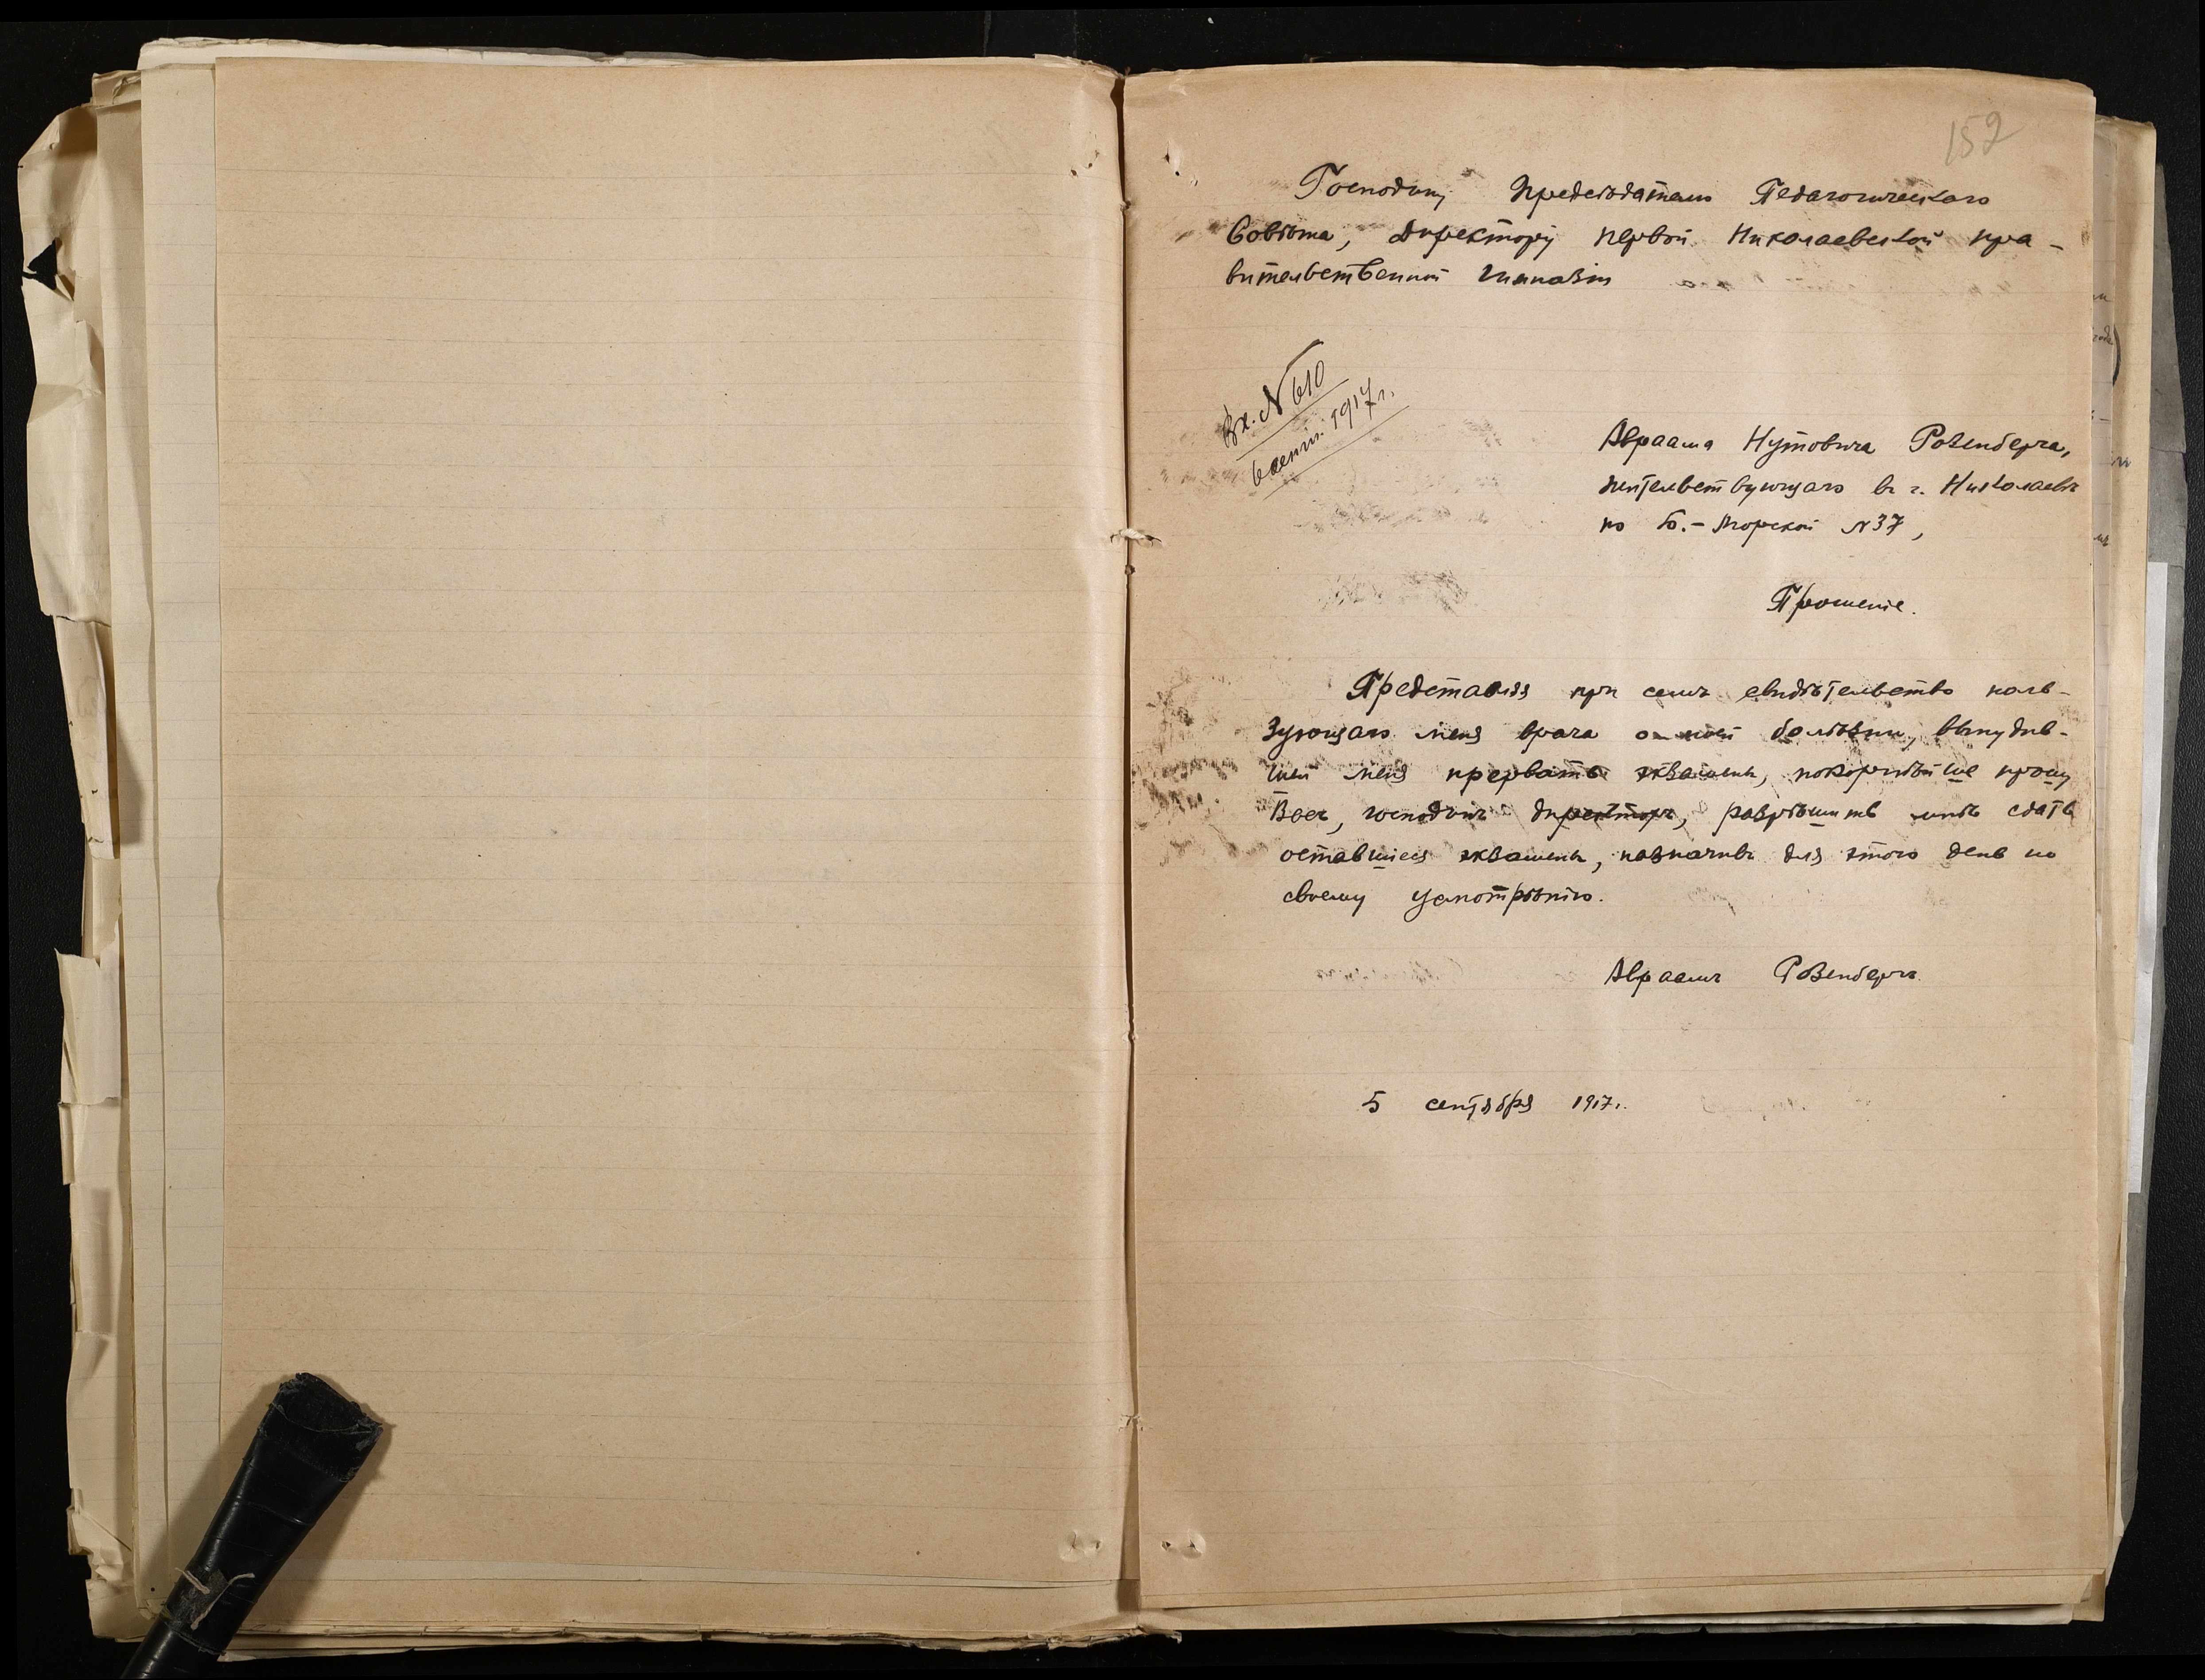 152
Господину Предсѣдателю Педагогическаго
Совѣта, Директору первой Николаевской пра-
вительственной гимназіи
Вх. № 610
6 сент. 1917 г.
Авраама Нутовича Розенберга,
жительствующаго въ г. Николаевѣ
по Б.-Морской №37,
Прошеніе.
Представляя при семъ свидѣтельство поль-
зующаго меня врача о моей болѣзни, вынудив-
шей меня прервать экзамены, покорнѣйше прошу
Васъ, господинъ директоръ, разрѣшить мнѣ сдать
оставшіеся экзамены, назначивъ для этого день по
своему усмотрѣнію.
Авраамъ Розенбергъ
5 сентября 1917г.